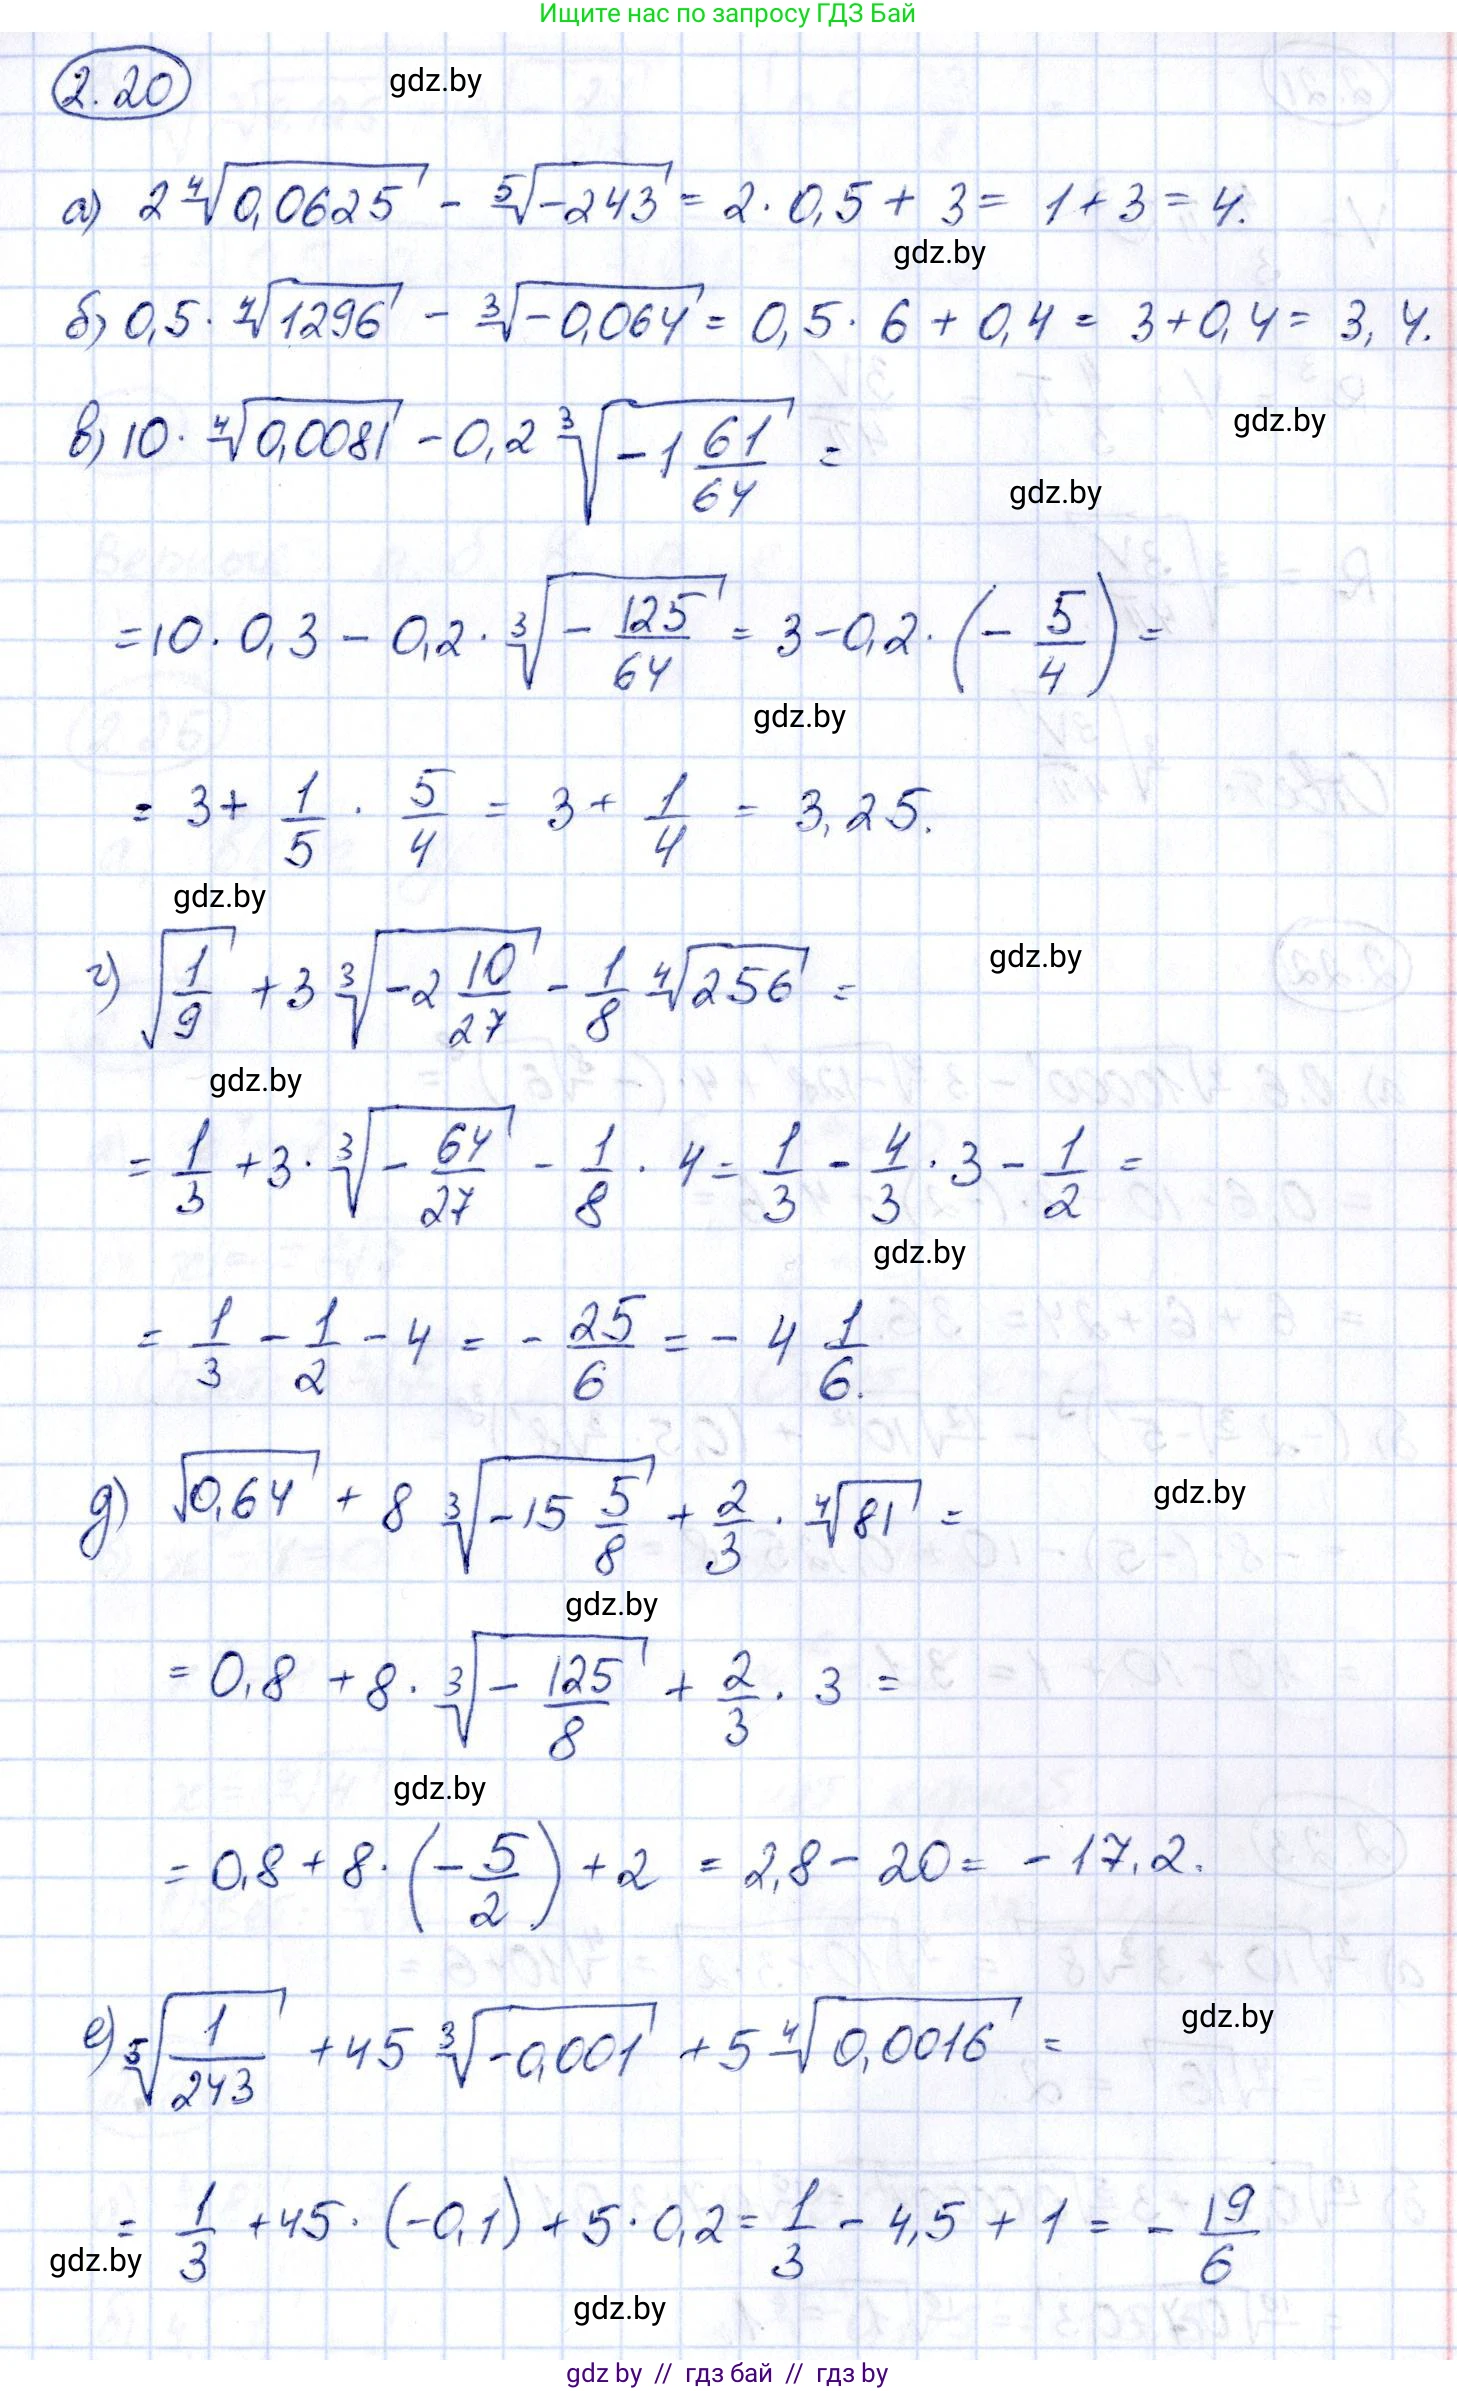 Ищите нас по запросу ГДЗ Бай
2.20
gdz.by
а) 2 ⁴√0,0625 - ⁵√-243 = 2 · 0,5 + 3 = 1 + 3 = 4.
gdz.by
б) 0,5 · ⁴√1296 - ³√-0,064 = 0,5 · 6 + 0,4 = 3 + 0,4 = 3,4.
gdz.by
в) 10 · ⁴√0,0081 - 0,2 ³√(-1 61/64) =
gdz.by
= 10 · 0,3 - 0,2 · ³√(-125/64) = 3 - 0,2 · (-5/4) =
gdz.by
= 3 + 1/5 · 5/4 = 3 + 1/4 = 3,25.
gdz.by
г) √(1/9) + 3 ³√(-2 10/27) - 1/8 ⁴√256 =
gdz.by
gdz.by
= 1/3 + 3 · ³√(-64/27) - 1/8 · 4 = 1/3 - 4/3 · 3 - 1/2 =
gdz.by
= 1/3 - 1/2 - 4 = - 25/6 = - 4 1/6.
д) √0,64 + 8 ³√(-15 5/8) + 2/3 · ⁴√81 =
gdz.by
gdz.by
= 0,8 + 8 · ³√(-125/8) + 2/3 · 3 =
gdz.by
= 0,8 + 8 · (-5/2) + 2 = 2,8 - 20 = - 17,2.
е) ⁵√(1/243) + 45 ³√-0,001 + 5 ⁴√0,0016 =
gdz.by
= 1/3 + 45 · (-0,1) + 5 · 0,2 = 1/3 - 4,5 + 1 = - 19/6
gdz.by
gdz.by
gdz by // гдз бай // гдз by